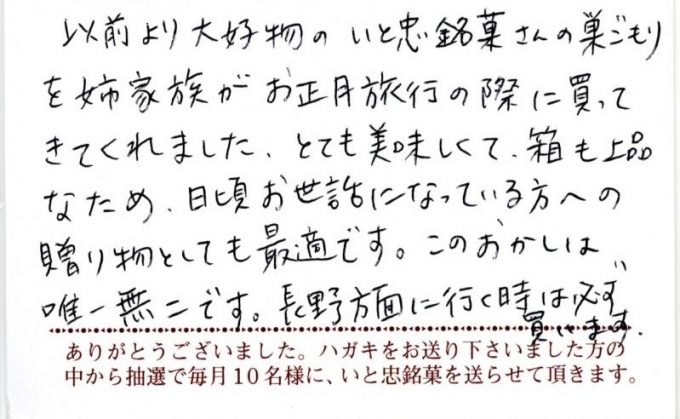 以前より大好物の いと忠銘菓さんの巣ごもり
を姉家族が お正月旅行の際に買って
きてくれました、とても美味しくて、箱も上品
なため、日頃お世話になっている方への
贈り物としても最適です。このおかしは
唯一無二です。長野方面に行く時は必ず
買います.
ありがとうございました。ハガキをお送り下さいました方の
中から抽選で毎月10名様に、いと忠銘菓を送らせて頂きます。